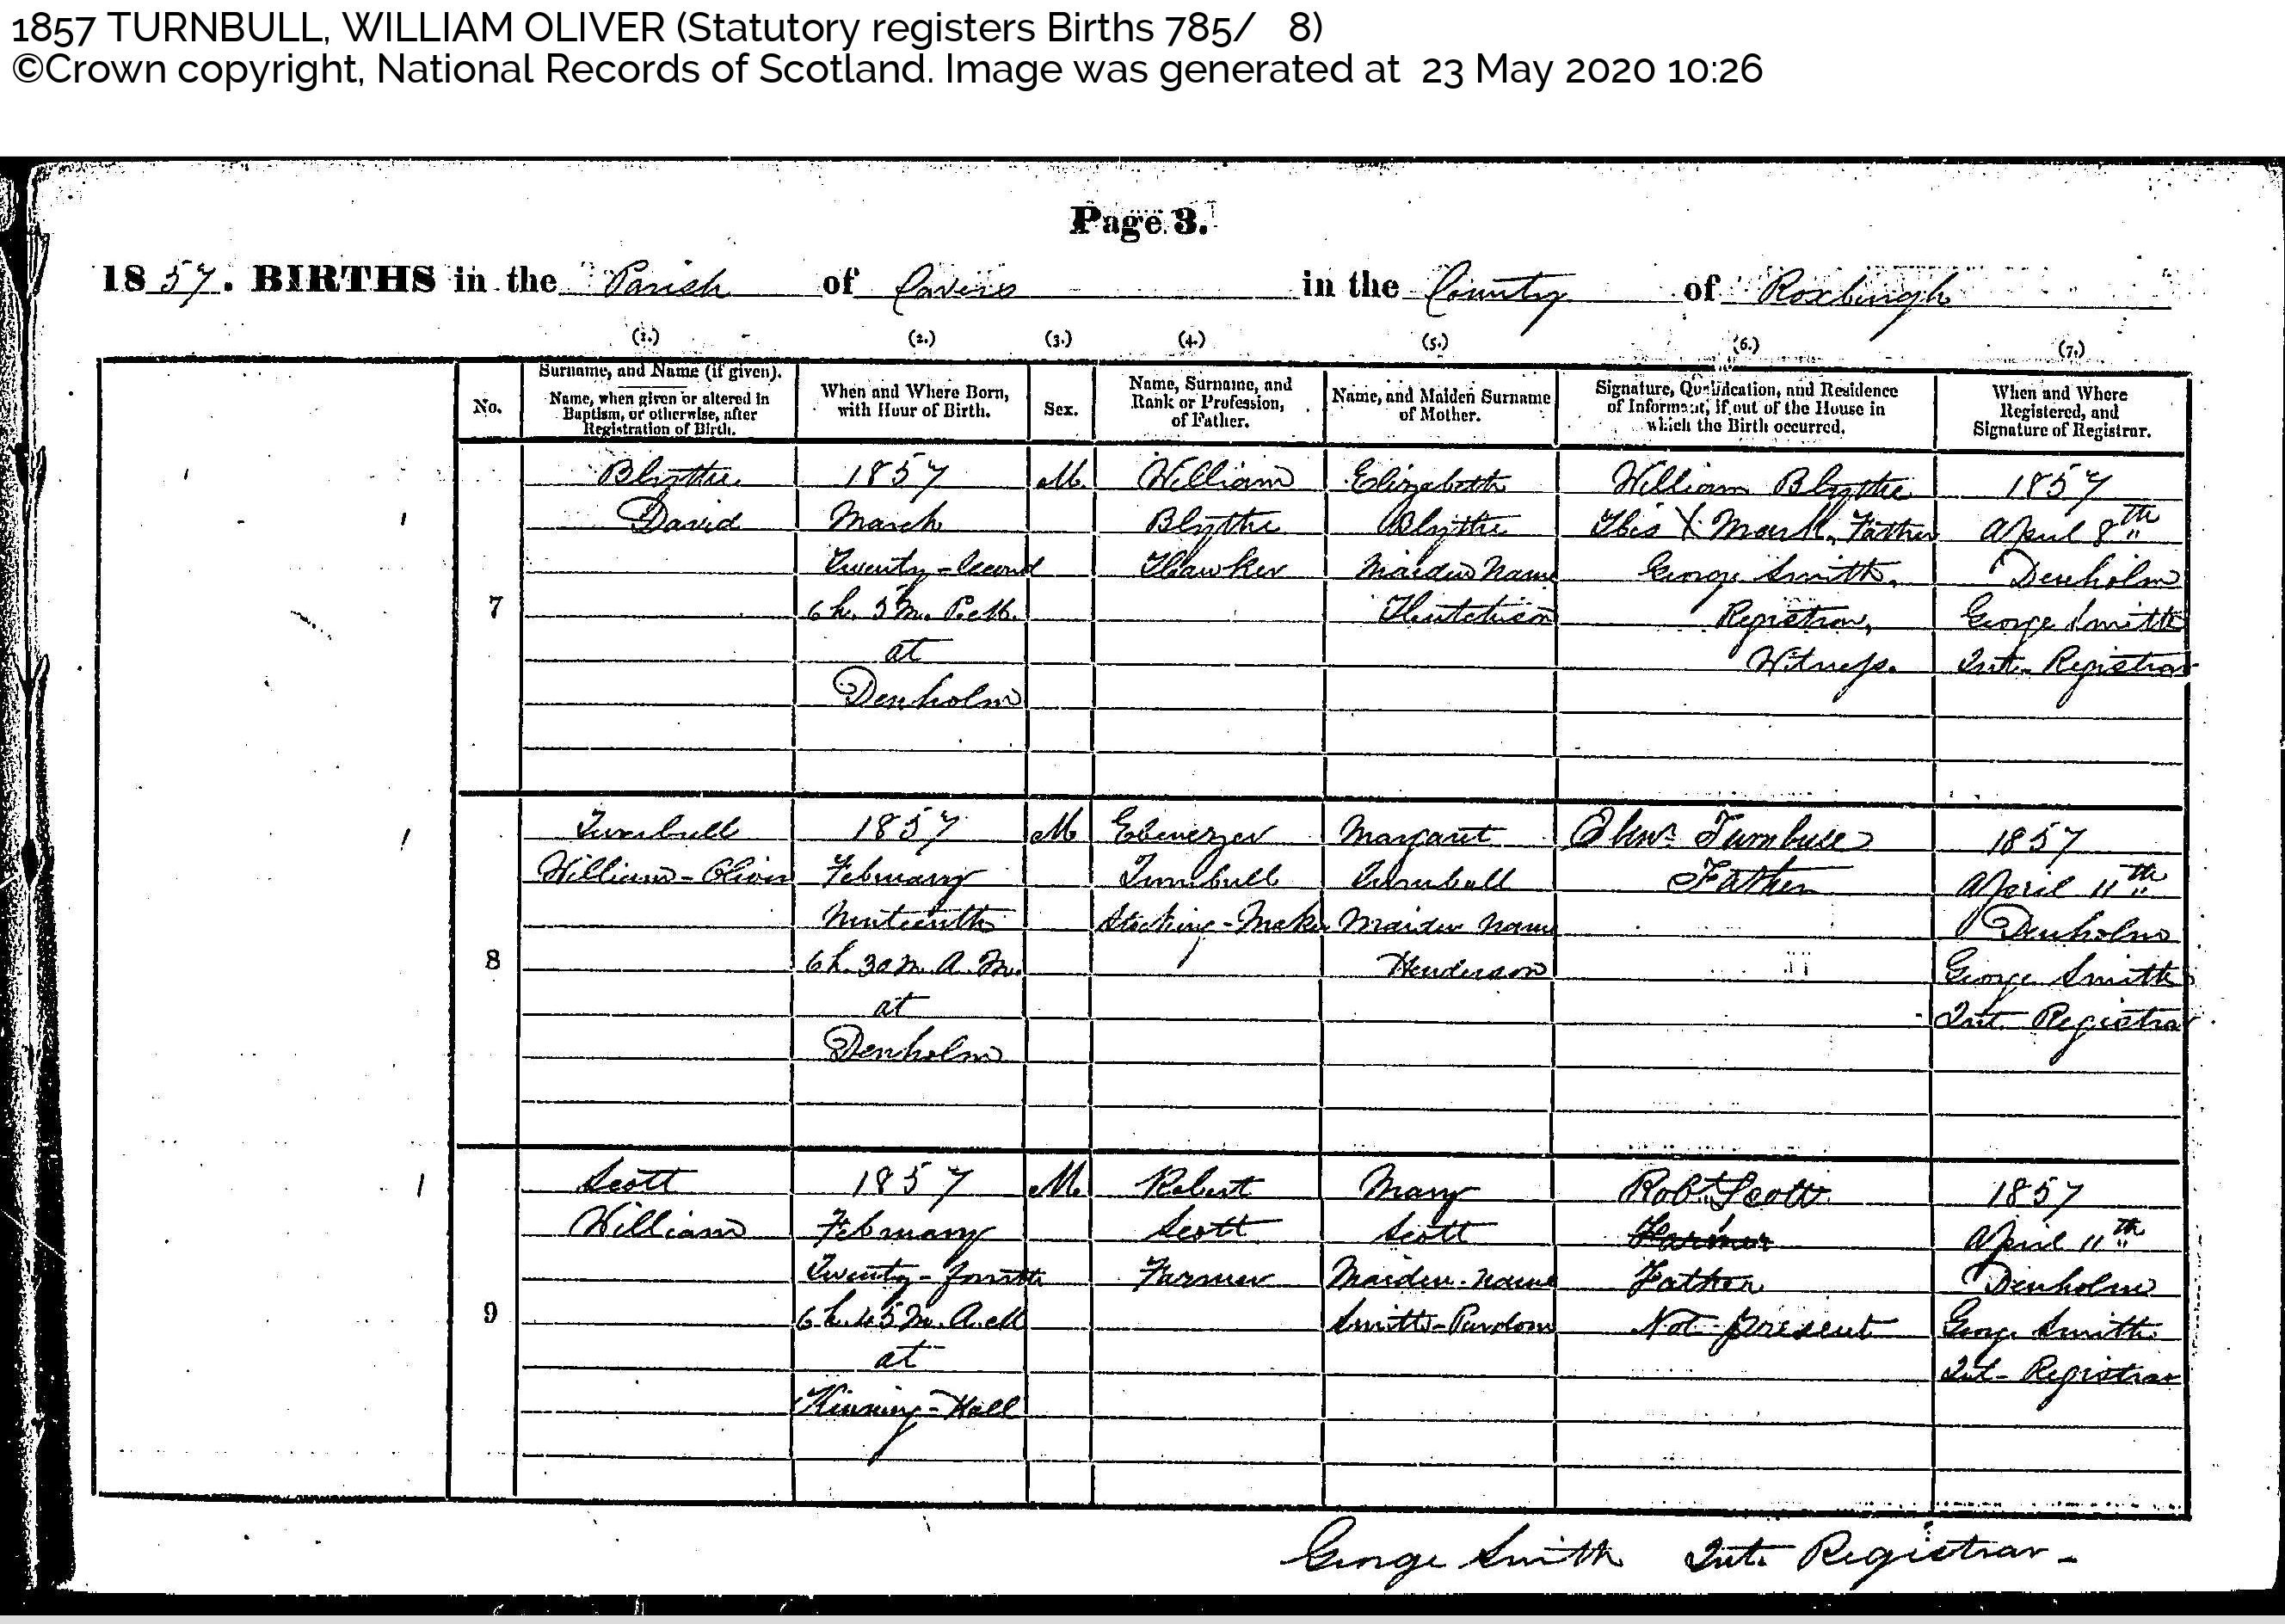 1857 TURNBULL, WILLIAM OLIVER (Statutory registers Births 785/ 8)
©Crown copyright, National Records of Scotland. Image was generated at 23 May 2020 10:26
Page 3.
1857. BIRTHS in the Parish of Cavers in the County of Roxburgh
(1.) (2.) (3.) (4.) (5.) (6.) (7.)
No.
Surname, and Name (if given).
Name, when given or altered in
Baptism, or otherwise, after
Registration of Birth.
When and Where Born,
with Hour of Birth.
Sex.
Name, Surname, and
Rank or Profession,
of Father.
Name, and Maiden Surname
of Mother.
Signature, Qualification, and Residence
of Informant, if out of the House in
which the Birth occurred.
When and Where
Registered, and
Signature of Registrar.
7
Blythe
David
1857
March
Twenty-Second
6 h. 5 m. P.M.
at
Denholm
M.
William
Blythe
Hawker
Elizabeth
Blythe
Maiden Name
Hutchison
William Blythe
His X Mark, Father
George Smith,
Registrar,
Witness.
1857
April 8th
Denholm
George Smith
Int. Registrar
8
Turnbull
William-Oliver
1857
February
Ninteenth
6 h. 30 m. A.M.
at
Denholm
M
Ebenezer
Turnbull
Stocking-Maker
Margaret
Turnbull
Maiden Name
Henderson
Ebenr Turnbull
Father
1857
April 11th
Denholm
George Smith
Int. Registrar
9
Scott
William
1857
February
Twenty-fourth
6 h. 45 m. A.M
at
Kinning-Hall
M.
Robert
Scott
Farmer
Mary
Scott
Maiden-Name
Smith-Purdom
Robt Scott
Farmer
Father
Not present
1857
April 11th
Denholm
George Smith
Int- Registrar
George Smith Int. Registrar-